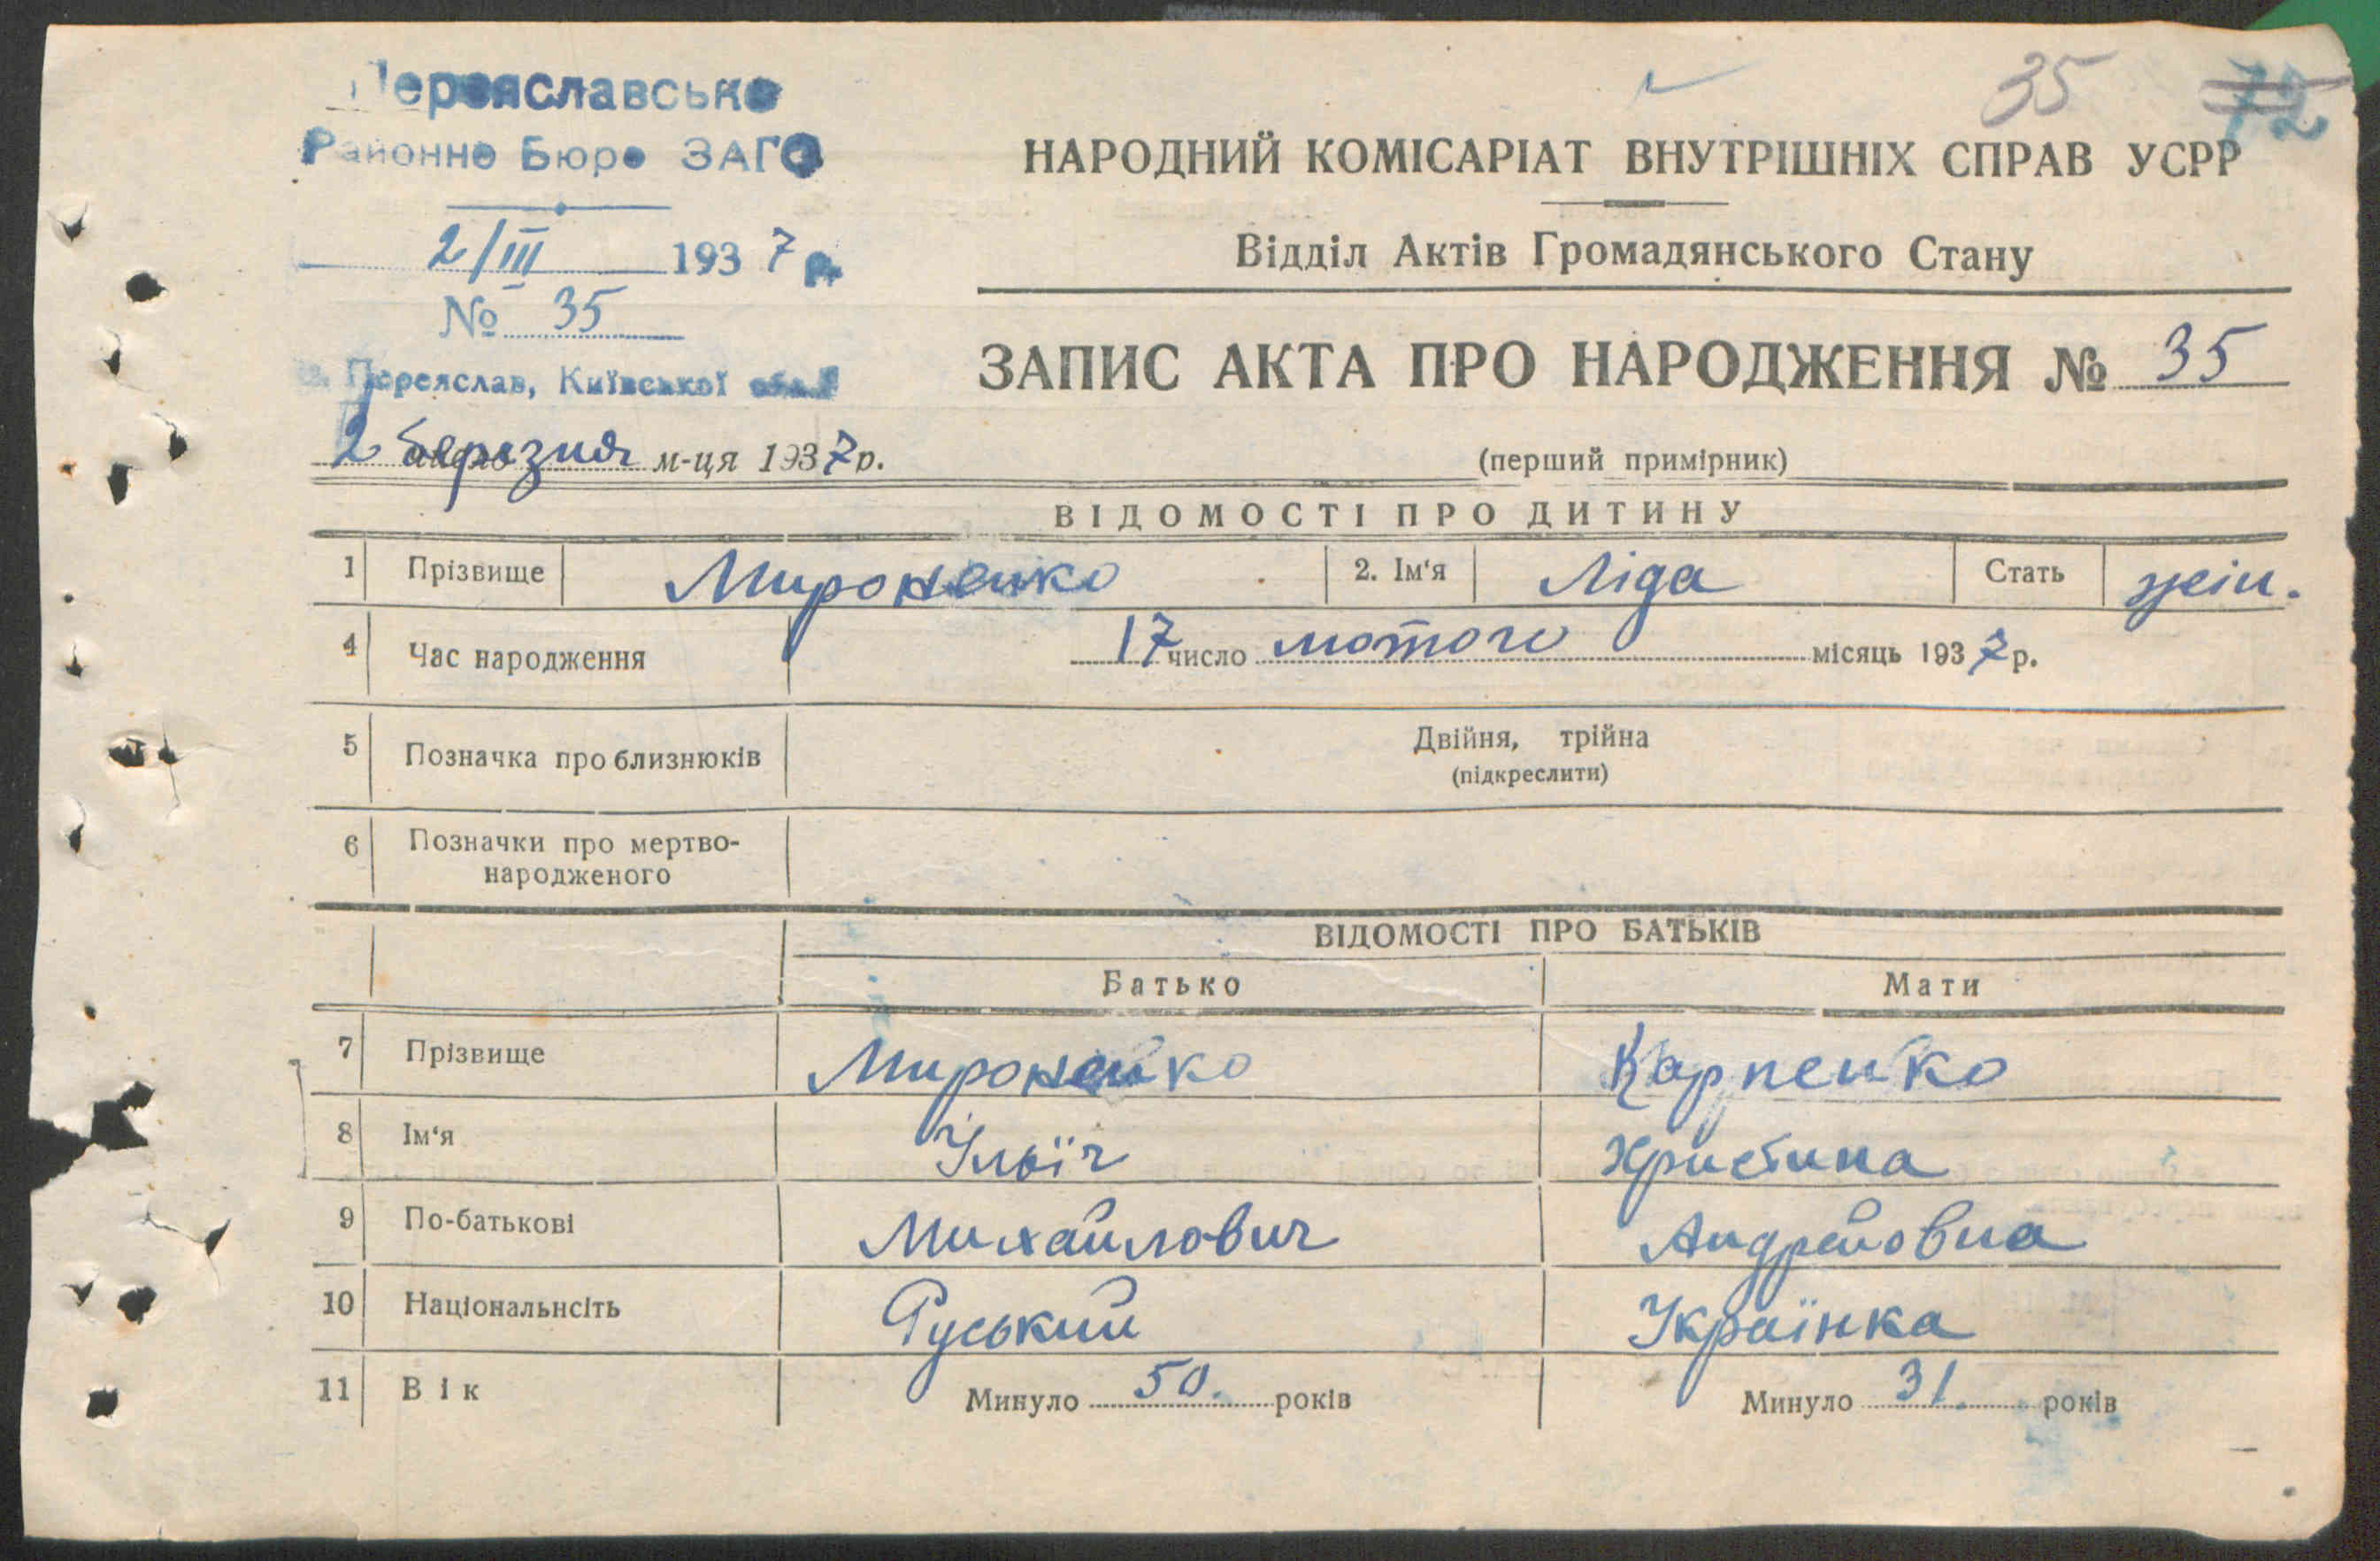 Переяславське
Районне Бюро ЗАГС
2/III 1937 р.
№ 35
м. Переяслав, Київської обл.
2 березня м-ця 1937 р.
35 72
НАРОДНИЙ КОМІСАРІАТ ВНУТРІШНІХ СПРАВ УСРР
Відділ Актів Громадянського Стану
ЗАПИС АКТА ПРО НАРОДЖЕННЯ № 35
(перший примірник)
ВІДОМОСТІ ПРО ДИТИНУ
1 Прізвище Мироненко 2. Ім'я Ліда Стать жін.
4 Час народження 17 число лютого місяць 1937 р.
5 Позначка про близнюків Двійня, трійна
(підкреслити)
6 Позначки про мертво-
народженого
ВІДОМОСТІ ПРО БАТЬКІВ
Батько Мати
7 Прізвище Мироненко Карпенко
8 Ім'я Ільїч Христина
9 По-батькові Михайлович Андрейовна
10 Національнсіть Руський Українка
11 Вік Минуло 50. років Минуло 31. років